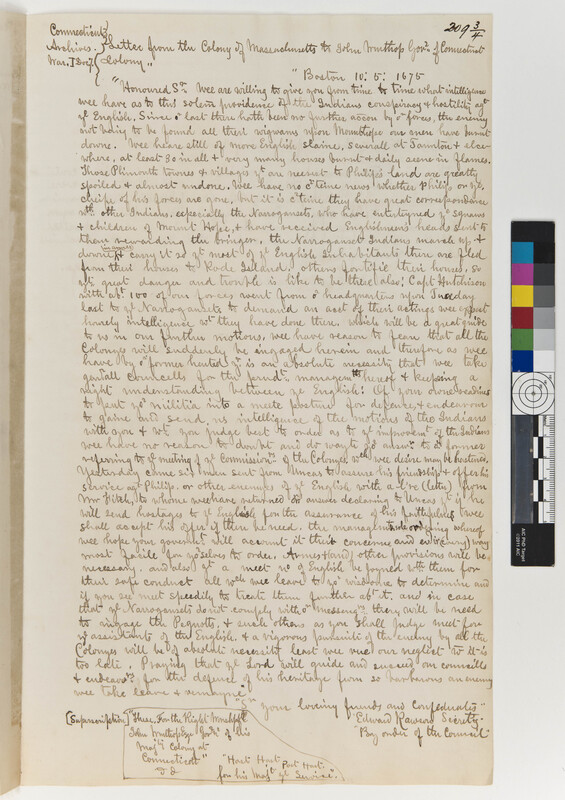 209 3/4
Connecticut
Archives.
War. I Doc 7
Letter from the Colony of Massachusetts to John Winthrop Govr. of Connecticut
Colony"
"Boston 10: 5: 1675
"Honoured Sr. Wee are willing to give you from time to time what intelligence
wee have as to this solem providence of the Indians conspiracy & hostility agt
ye English. Since or last there hath been no further accon by or forces, the enemy
not being to be found all their wigwams upon Mounthope our men have burnt
downe. Wee heare still of more English slaine, severall at Taunton & else-
where, at least 30 in all & very many houses burnt & daily seene in flames.
Those Plimouth townes & villages yt are neerest to Philips land are greatly
spoiled & almost undone. Wee have no certeine news whether Philip or ye
cheife of his forces are gone, but it is certeine they have great correspondance
wth. other Indians, especially the Narrogansets, who have enterteyned ye squaws
& children of Mount Hope, & have received Englishmens heads sent to
them rewarding the bringer. the Narroganset Indians march up &
downe, & carry it so yt most of ye English Inhabitants there are fled
in armes
from their houses to Rode Island. others fortifie their houses, so
yt great danger and trouble is like to be there also: Capt Hutchinson
with abt. 100 of our forces went from or headquarters upon Tuesday
last to ye Narrogansets to demand an acct of their actings wee expect
hourely intelligence wt they have done there, which will be a great guide
to us in our further motions, wee have reason to fear that all the
Colonyes will suddenly be ingaged herein and therefore as wee
have by or former hented it is an absolute necessity that wee take
genrall councells for the managemt hereof & keeping a
right understanding between ye English: Of your owne readines
to put ye militia into a meete posture for defence, & endeavour
to gaine and send us intelligence of the motions of the Indians
with you & wt you judge best to order as to ye improvemt of the Indians
wee have no reason to doubt and do wayte yor answr. to or former
referring to ye meeting of ye Commissionrs of the Colonyes wch wee desire may be hastened.
Yesterday came six men sent from Uncas to assure his friendship & offer his
service agt Philip. or other enemyes of ye English with a l're (letter) from
Mr Fitch, to whome wee have returned or answer declaring to Uncas yt if he
will send hostages to ye English for the assurance of his faithfulnes wee
shall accept his offer if there be need. the managemt & ordering whereof
wee hope your governmt will account it their concerne and every way
most facile for yorselves to order. Armes (and) other provisions will be
necessary. and also yt a meet no of English be joyned wth them for
their safe conduct all wch wee leave to yor wisdome to determine and
if you see meet speedily to treat them further abt it, and in case
that ye Narrogansets do not comply with or messengrs there will be need
to ingage the Pequotts, & such others as you shall judge meet for
ye assistants of the English. & a vigorous pursuite of the enemy by all the
Colonyes will be of absolute necessity least wee rue our neglect wn it is
too late. Praying that ye Lord will guide and succeed our councills
& endeavrs for the defence of his heritage from so barbarous an enemy
wee take leave & remayne
"Sr your loveing friends and Confederates"
Edward Rawson Secrty.
By order of the Council"
[Superscription]
"These. For the Right Worshipfll
John Winthrop Esqr Govrr of his
Majts Colony at
Connecticott"
d d
"Hast Hast Post Hast
for his Majts ye Service".
AIC PhD Target